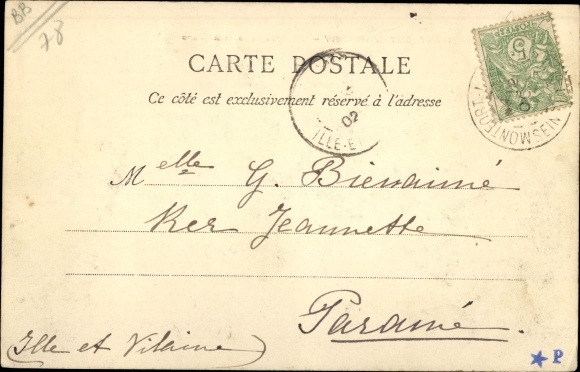 BB
78
CARTE POSTALE
Ce côté est exclusivement réservé à l'adresse
5
02
ILLE-E
MONTFORT
SEINE
Melle G. Bienaimé
Ker Jeannette
Paramé.
(Ille et Vilaine)
P